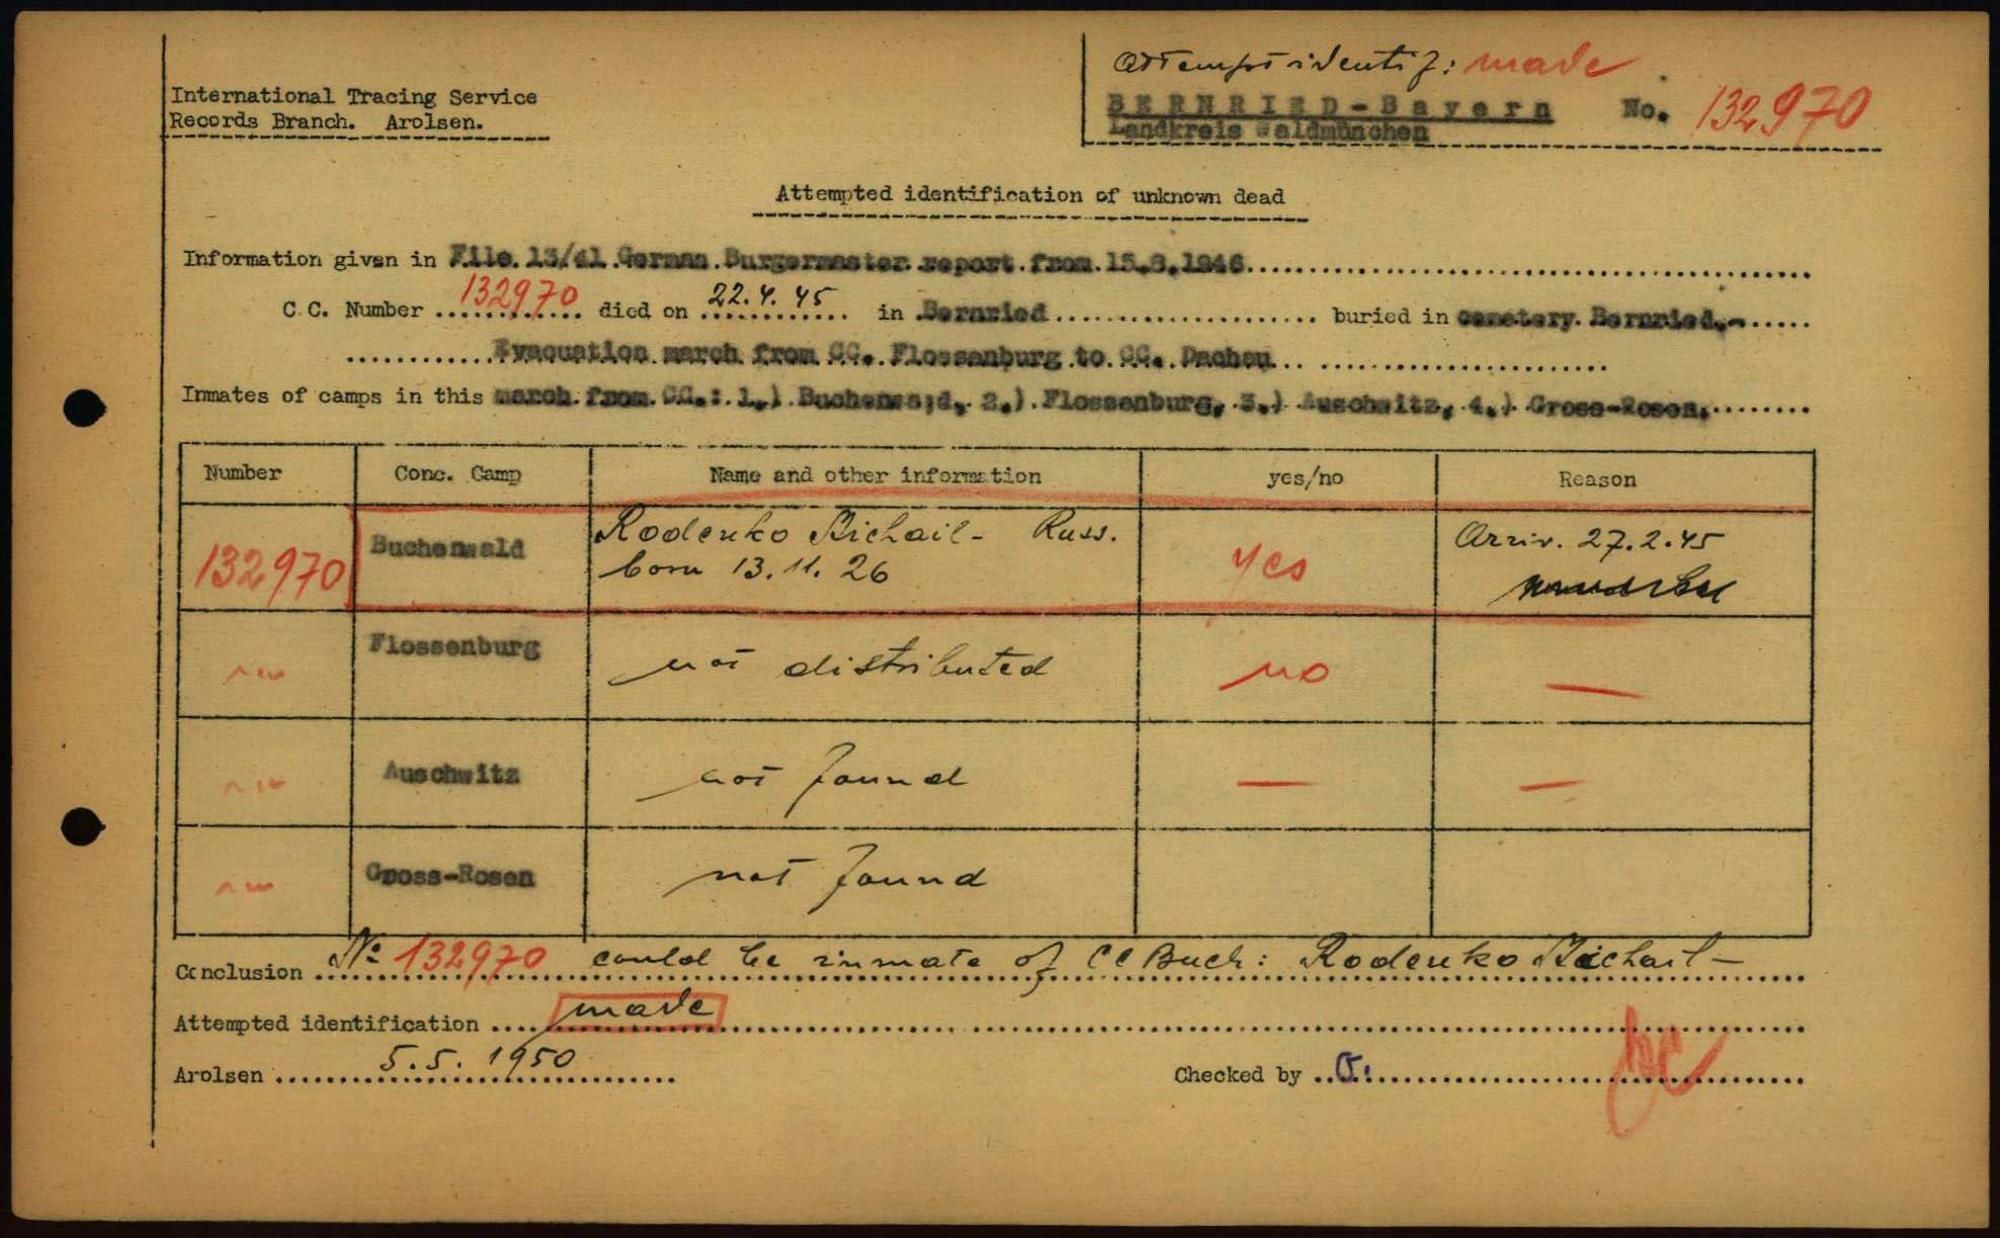 Attempt identif: made
International Tracing Service
Records Branch. Arolsen.
BERNRIED-Bayern No. 132970
Landkreis Waldmünchen
Attempted identification of unknown dead
Information given in File 13/41 German Burgermaster report from 15.8.1946
C.C. Number 132970 died on 22.4.45 in Bernried buried in cemetery Bernried.-
Evacuation march from CC. Flossenburg to CC. Dachau
Inmates of camps in this march from CC.: 1.) Buchenwa;d, 2.) Flossenburg, 3.) Auschwitz, 4.) Gross-Rosen.
Number Conc. Camp Name and other information yes/no Reason
132970 Buchenwald Rodenko Michail- Russ. yes Arriv. 27.2.45
born 13.11.26
Flossenburg not distributed no —
Auschwitz not found — —
Gross-Rosen not found
Conclusion No 132970 could be inmate of CC Buch: Rodenko Michail-
Attempted identification made
Arolsen 5.5.1950 Checked by